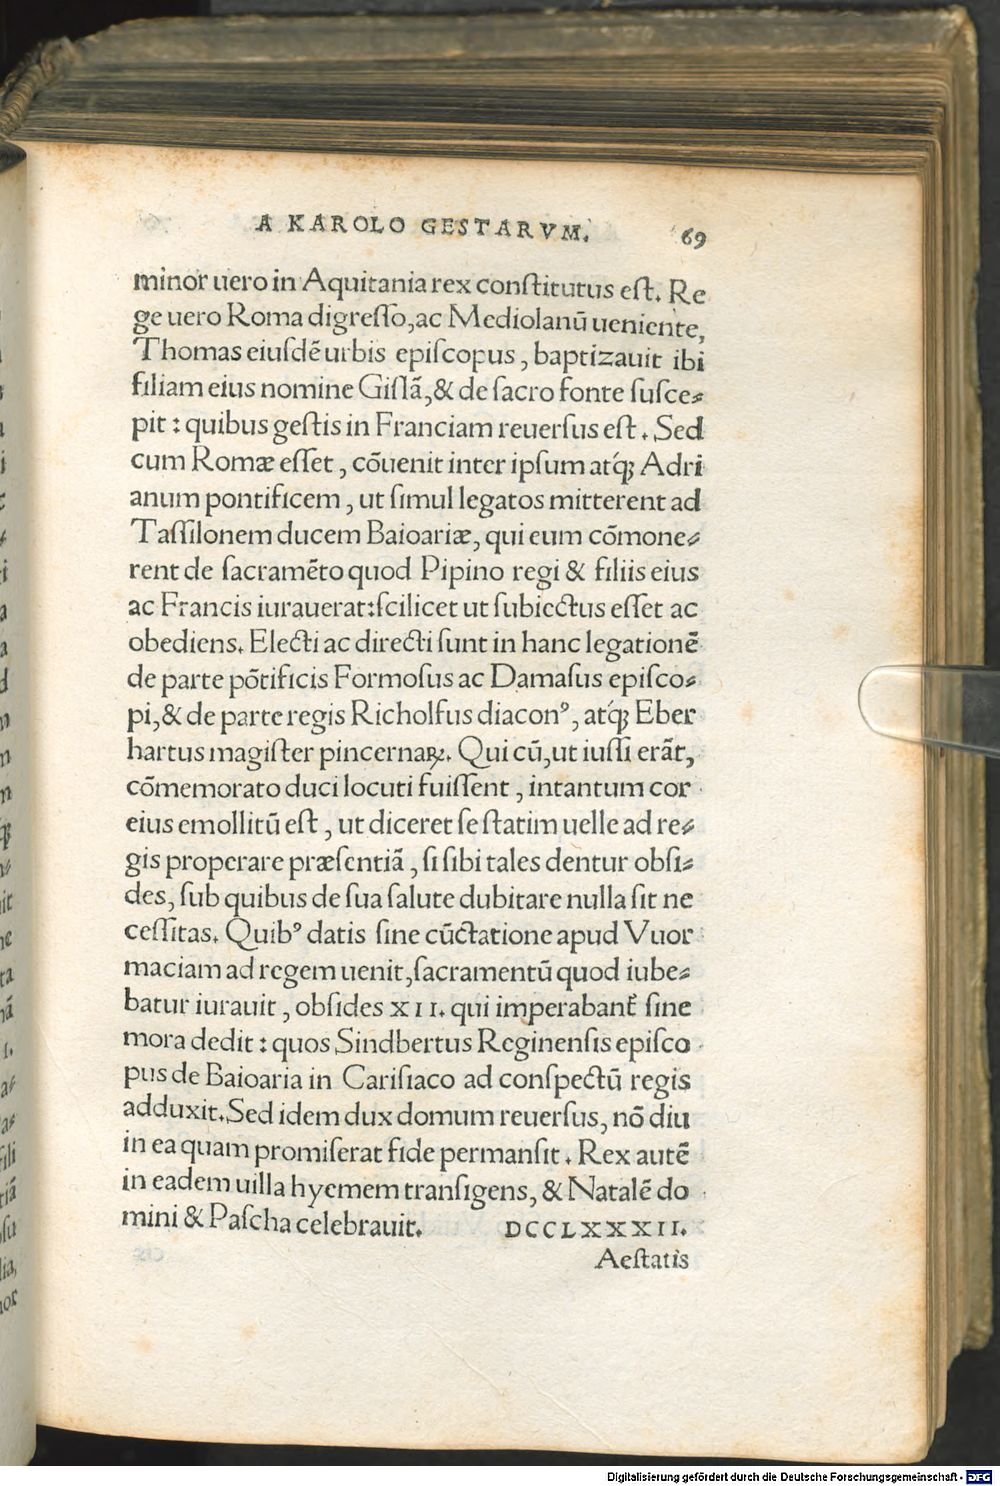 A KAROLO GESTARVM. 69
minor uero in Aquitania rex conſtitutus eſt. Re
ge uero Roma digreſſo, ac Mediolanū ueniente,
Thomas eiuſdē urbis epiſcopus, baptizauit ibi
filiam eius nomine Giſlā, & de ſacro fonte ſuſce⸗
pit: quibus geſtis in Franciam reuerſus eſt. Sed
cum Romæ eſſet, cōuenit inter ipſum atq́ꝫ Adri
anum pontificem, ut ſimul legatos mitterent ad
Taſſilonem ducem Baioariæ, qui eum cōmone⸗
rent de ſacramēto quod Pipino regi & filiis eius
ac Francis iurauerat: ſcilicet ut ſubiectus eſſet ac
obediens. Electi ac directi ſunt in hanc legationē
de parte pōtificis Formoſus ac Damaſus epiſco⸗
pi, & de parte regis Richolfus diaconꝰ, atq́ꝫ Eber
hartus magiſter pincernaꝝ. Qui cū, ut iuſſi erāt,
cōmemorato duci locuti fuiſſent, intantum cor
eius emollitū eſt, ut diceret ſe ſtatim uelle ad re⸗
gis properare præſentiā, ſi ſibi tales dentur obſi⸗
des, ſub quibus de ſua ſalute dubitare nulla ſit ne
ceſſitas. Quibꝰ datis ſine cūctatione apud Vuor
maciam ad regem uenit, ſacramentū quod iube⸗
batur iurauit, obſides XII. qui imperabant᷑ ſine
mora dedit: quos Sindbertus Reginenſis epiſco
pus de Baioaria in Cariſiaco ad conſpectū regis
adduxit. Sed idem dux domum reuerſus, nō diu
in ea quam promiſerat fide permanſit. Rex autē
in eadem uilla hyemem tranſigens, & Natalē do
mini & Paſcha celebrauit. DCCLXXXII.
Aeſtatis
Digitalisierung gefördert durch die Deutsche Forschungsgemeinschaft - DFG